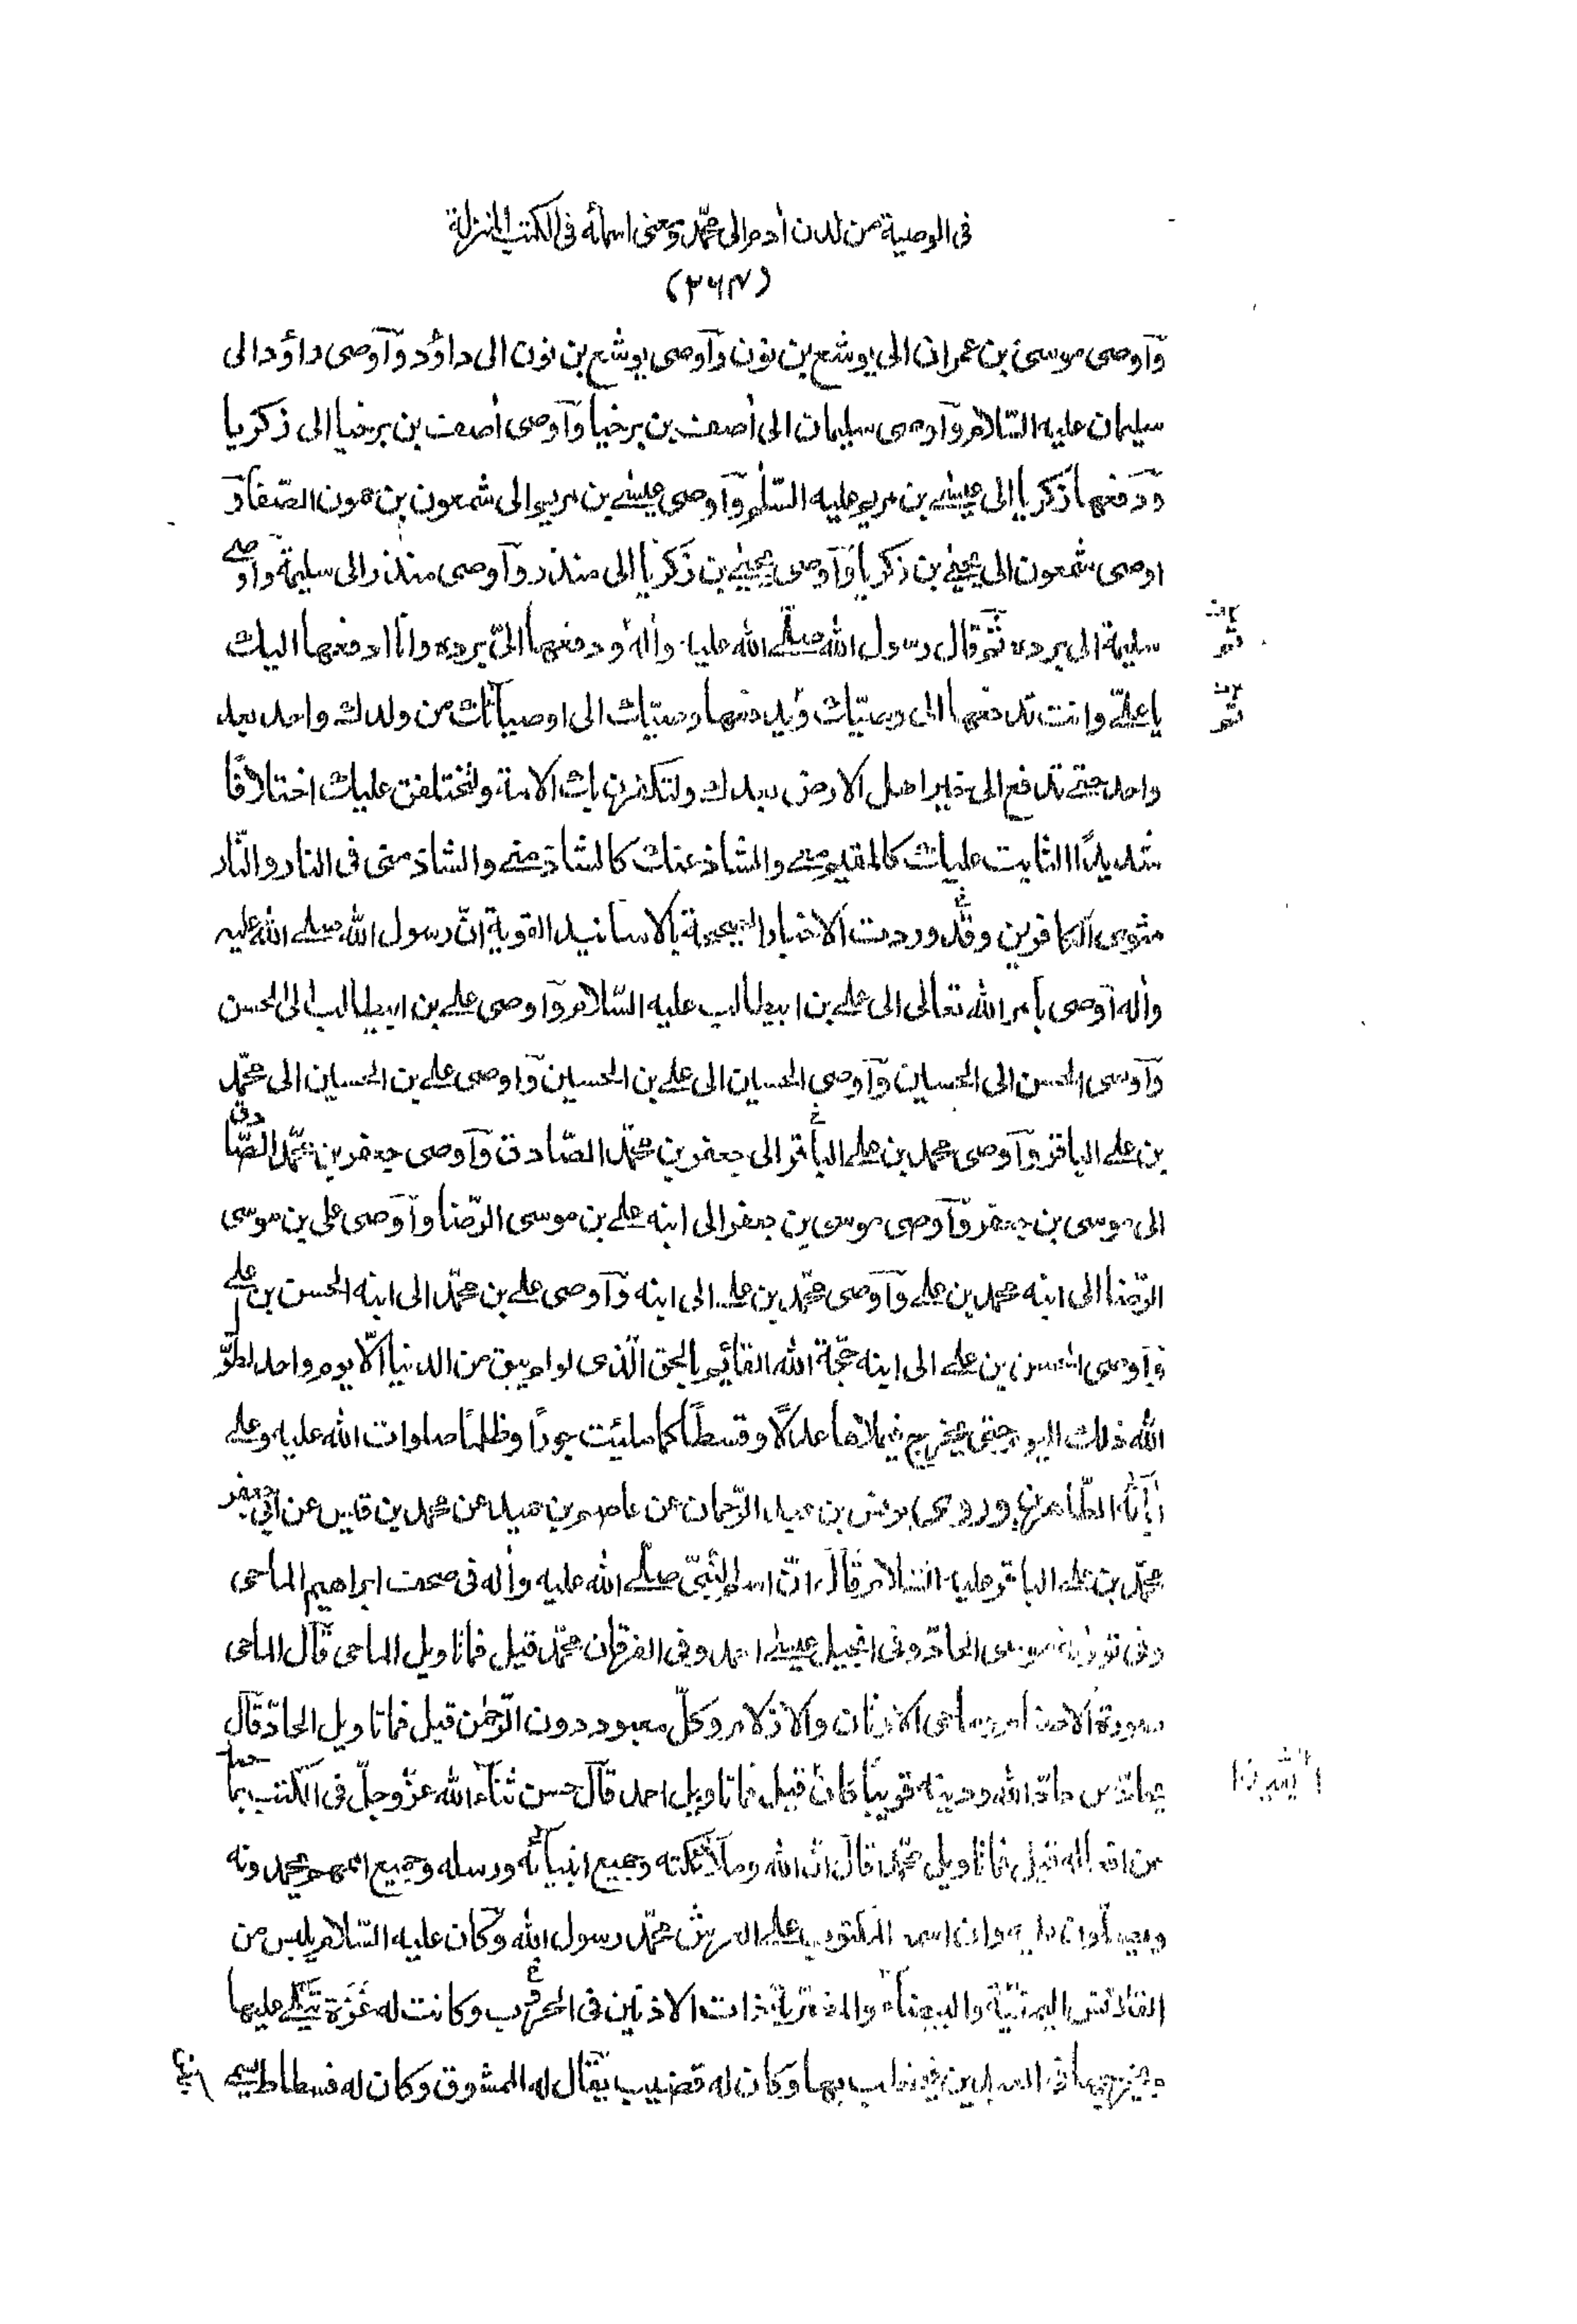 فى الوصية من لدن أدم الى محمّد ومعنى اسمائه فى الكتب المنزلة
(٢٦٧)
وَاَوصى موسىٰ بن عمران الى يوشع بن نون وَاَوصى يوشع بن نون الى داؤد وَاَوصى داؤد الى
سليمان عليه السّلام وَاَوصى سليمان الى أصف بن برخيا وَاَوصى أصف بن برخيا الى زكريا
وَدَفعها زكريا الى عيسٰے بن مريم عليه السّلٰم وَاَوصى عيسٰے بن مريم الى شمعون بن حمون الصّفا وَ
اوصى شمعون الى يحيٰے بن زكريا وَاَوصى يحيٰے بن زكريا الى منذر وَاَوصى منذر الى سليمة وَاَوصے
سليمة الى برده ثمّ قال رسول الله صلّے الله عليه وأله ودفعها الىّ برده وانا ادفعها اليك
يا علىّ وانت تدفعها الى وصيّك وَيدفعها وصيّك الى اوصيائك من ولدك واحد بعد
واحد حتّے تدفع الى خير اهل الارض بعدك ولتكفرن بك الامة ولتختلفن عليك اختلافًا
شديدًا الثابت عليك كالمقيم معے والشاذ عنك كالشاذ منے والشاذ منى فى النار والنّار
مثوى الكافرين وقَد وردت الاخبار الصحيحة بالاسانيد القوية انّ رسول الله صلے الله عليه
وأله اَوصى بأمر الله تعالى الى علے بن ابيطالب عليه السّلام وَاَوصى علے بن ابيطالب الى الحسن
وَاَوصى الحسن الى الحسين وَاَوصى الحسين الى علے بن الحسين وَاَوصى علے بن الحسين الى محمّد
بن علے الباقر وَاَوصى محمد بن علے الباقر الى جعفر بن محمّد الصّادق وَاَوصى جعفر بن محمّد الصّادق
الى موسى بن جعفر وَاَوصى موسى بن جعفر الى ابنه علے بن موسى الرّضا وَاَوصى على بن موسى
الرّضا الى ابنه محمد بن علے وَاَوصى محمّد بن علے الى ابنه وَاَوصى علے بن محمّد الى ابنه الحسن بن علے
وَاَوصى الحسن بن علے الى ابنه حجّة الله القائم بالحق الّذى لو لم يبق من الدنيا الّا يوم واحد لطوّ
الله ذلك اليوم حتى يخرج فيملأها عدلًا وقسطًا كما ملئت جورًا وظلمًا صلوات الله عليه وعلے
أبائه الطّاهرين وروى يونس بن عبد الرّحمان عن عاصم بن حميد عن محمد بن قيس عن أبي جعفر
محمّد بن علے الباقر عليه السّلام قَال انّ اسم النّبىّ صلّے الله عليه وأله فى صحف ابراهيم الماحى
وفى توراة موسى الحادّ وفى انجيل عيسٰے احمد وفى الفرقان محمّد قيل فما تاويل الماحى قَال الماحى
صورة الاصنام وماحى الاوثان والازلام وكلّ معبود دون الرّحمٰن قيل فما تاويل الحادّ قَال
يحادّ من حادّ الله ودينه قريبًا كان قيل فما تاويل احمد قَال حسن ثناء الله عزّ وجلّ فى الكتب بما حمد
من افعاله قيل فما تاويل محمّد قَال انّ الله وملائكته وجميع انبيائه ورسله وجميع اممهم يحمدونه
ويصلّون عليه وان اسمه المكتوب علے العرش محمّد رسول الله وَكان عليه السّلام يلبس من
القلانس اليمنيّة والبيضاء والمضريّة ذات الاذنين فى الحرب وكانت له عَنَزة يتّكے عليها
ويخرجها فى العيدين فيخطب بها وَكان له قضيب يقَال له الممشوق وكان له فسطاط يسمے